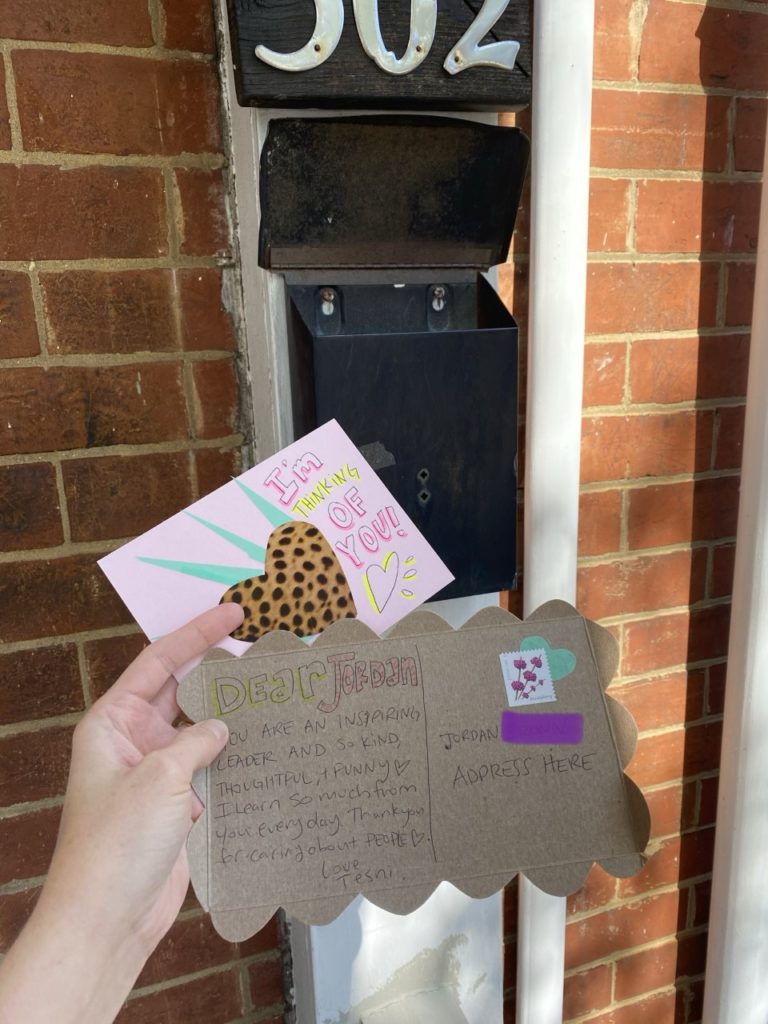 502
I'm
THINKING
OF
YOU!
DEar JORDAN
YOU ARE AN INSPIRING
LEADER AND SO KIND,
THOUGHTFUL, + FUNNY ♡
I Learn so much from
you every day. Thank you
for caring about PEOPLE ♡.
Love
Tesni.
JORDAN
ADDRESS HERE